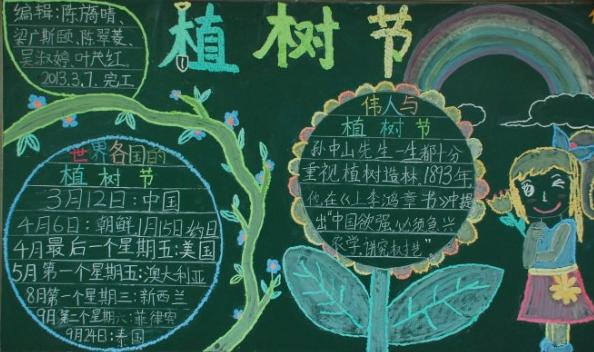 编辑:陈旖晴、
梁广颐、陈翠菱、
吴淑婷、叶茂红。
2013.3.7.完工
植树节
世界各国的
植树节
3月12日:中国
4月6日:朝鲜1月15日约旦
4月最后一个星期五:美国
5月第一个星期五:澳大利亚
8月第一个星期三:新西兰
9月第二个星期六:菲律宾
9月24日:泰国
伟人与
植树节
孙中山先生一生都十分
重视植树造林,1893年
他在《上李鸿章书》中提
出“中国欲强,必须急兴
农学,讲究树艺”